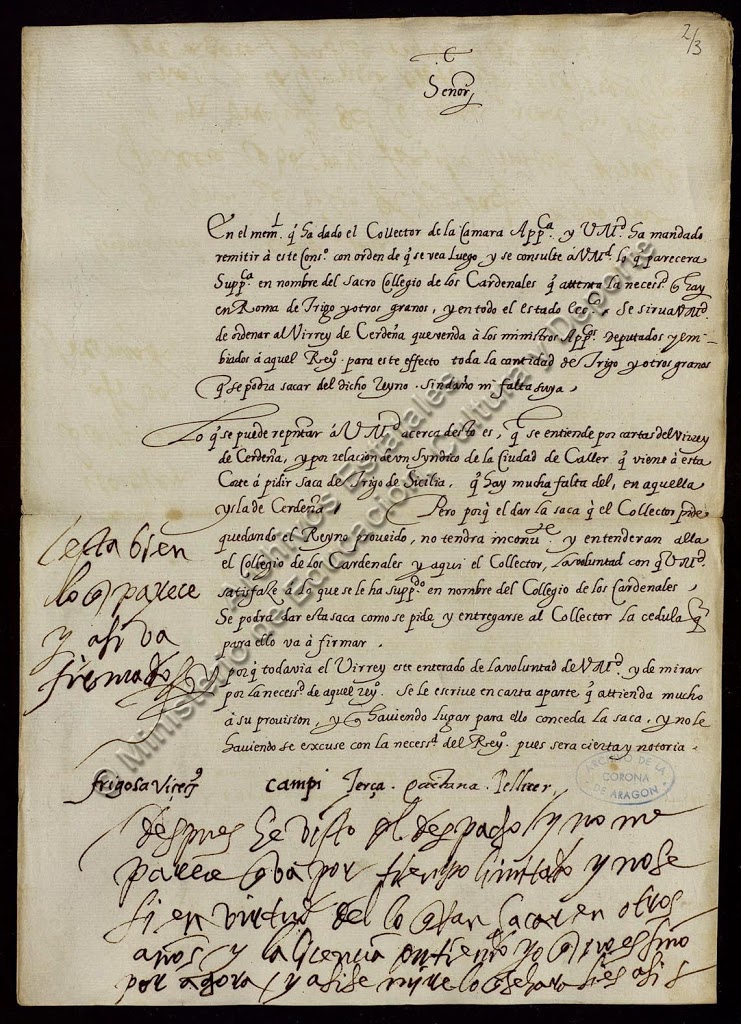 2/3
Señor
En el mem.l q̃ ha dado el Collector de la Camara App.ca y V M.d ha mandado
remitir à este Cons.o con orden de q̃ se vea Luego y se consulte à V M.d lo q̃ parecera
Supp.ca en nombre del Sacro Collegio de los Cardenales q̃ attento la necess.d q̃ hay
en Roma de Trigo y otros granos, y en todo el estado Ecc.co Se sirva V M.d
de ordenar al Virrey de Cerdeña que venda à los ministros App.cos Deputados y em-
biados á aquel Rey.o para este effecto toda la cantidad de Trigo y otros granos
q̃ se podra sacar del dicho Reyno. Sin daño ni falta suya.
Lo q̃ se puede repñtar á V M.d acerca desto es, q̃ se entiende por cartas del Virrey
de Cerdeña, y por relacion de un Syndico de la Ciudad de Caller q̃ viene à esta
Corte à pidir saca de Trigo de Sicilia, q̃ hay mucha falta del, en aquella
ysla de Cerdeña. Pero porq̃ el dar la saca q̃ el Collector pide
quedando el Reyno proueido, no tendra inconu.te y entenderan alla
el Collegio de los Cardenales y aqui el Collector, la voluntad con q̃ V M.d
satisfaze à lo que se le ha supp.do en nombre del Collegio de los Cardenales
Se podra dar esta saca como se pide y entregarse al Collector la cedula q̃
para ello va à firmar.
porq̃ todavia el Virrey este enterado de la voluntad de V M.d y de mirar
por la necess.d de aquel rey.o Se le escriue en carta aparte q̃ attienda mucho
à su provision, y q̃ haviendo lugar para ello conceda la saca, y no le
haviendo se excuse con la necess.d del Rey.o pues sera cierta y notoria.
esta bien
lo q̃ parece
y asi va
firmado
frigola Vicecs
campi Terça. quintana. Pellicer
despues he visto el despacho y no me
parece q̃ va por tiempo limitado y no se
si en virtud de lo q̃ran sacar en otros
años y la licencia entiendo yo q̃ no es sino
por agora y asi se mire lo q̃ se hara si es asi
© Ministerio de Educación, Cultura y Deporte
Archivos Estatales
ARCHIVO DE LA
CORONA
DE ARAGON